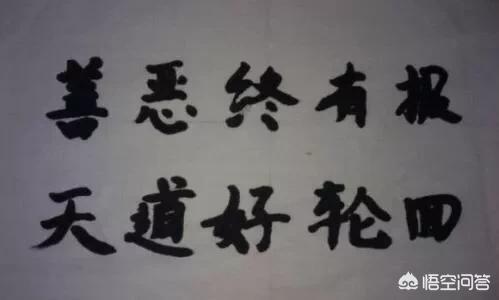 善恶终有报
天道好轮回
悟空问答